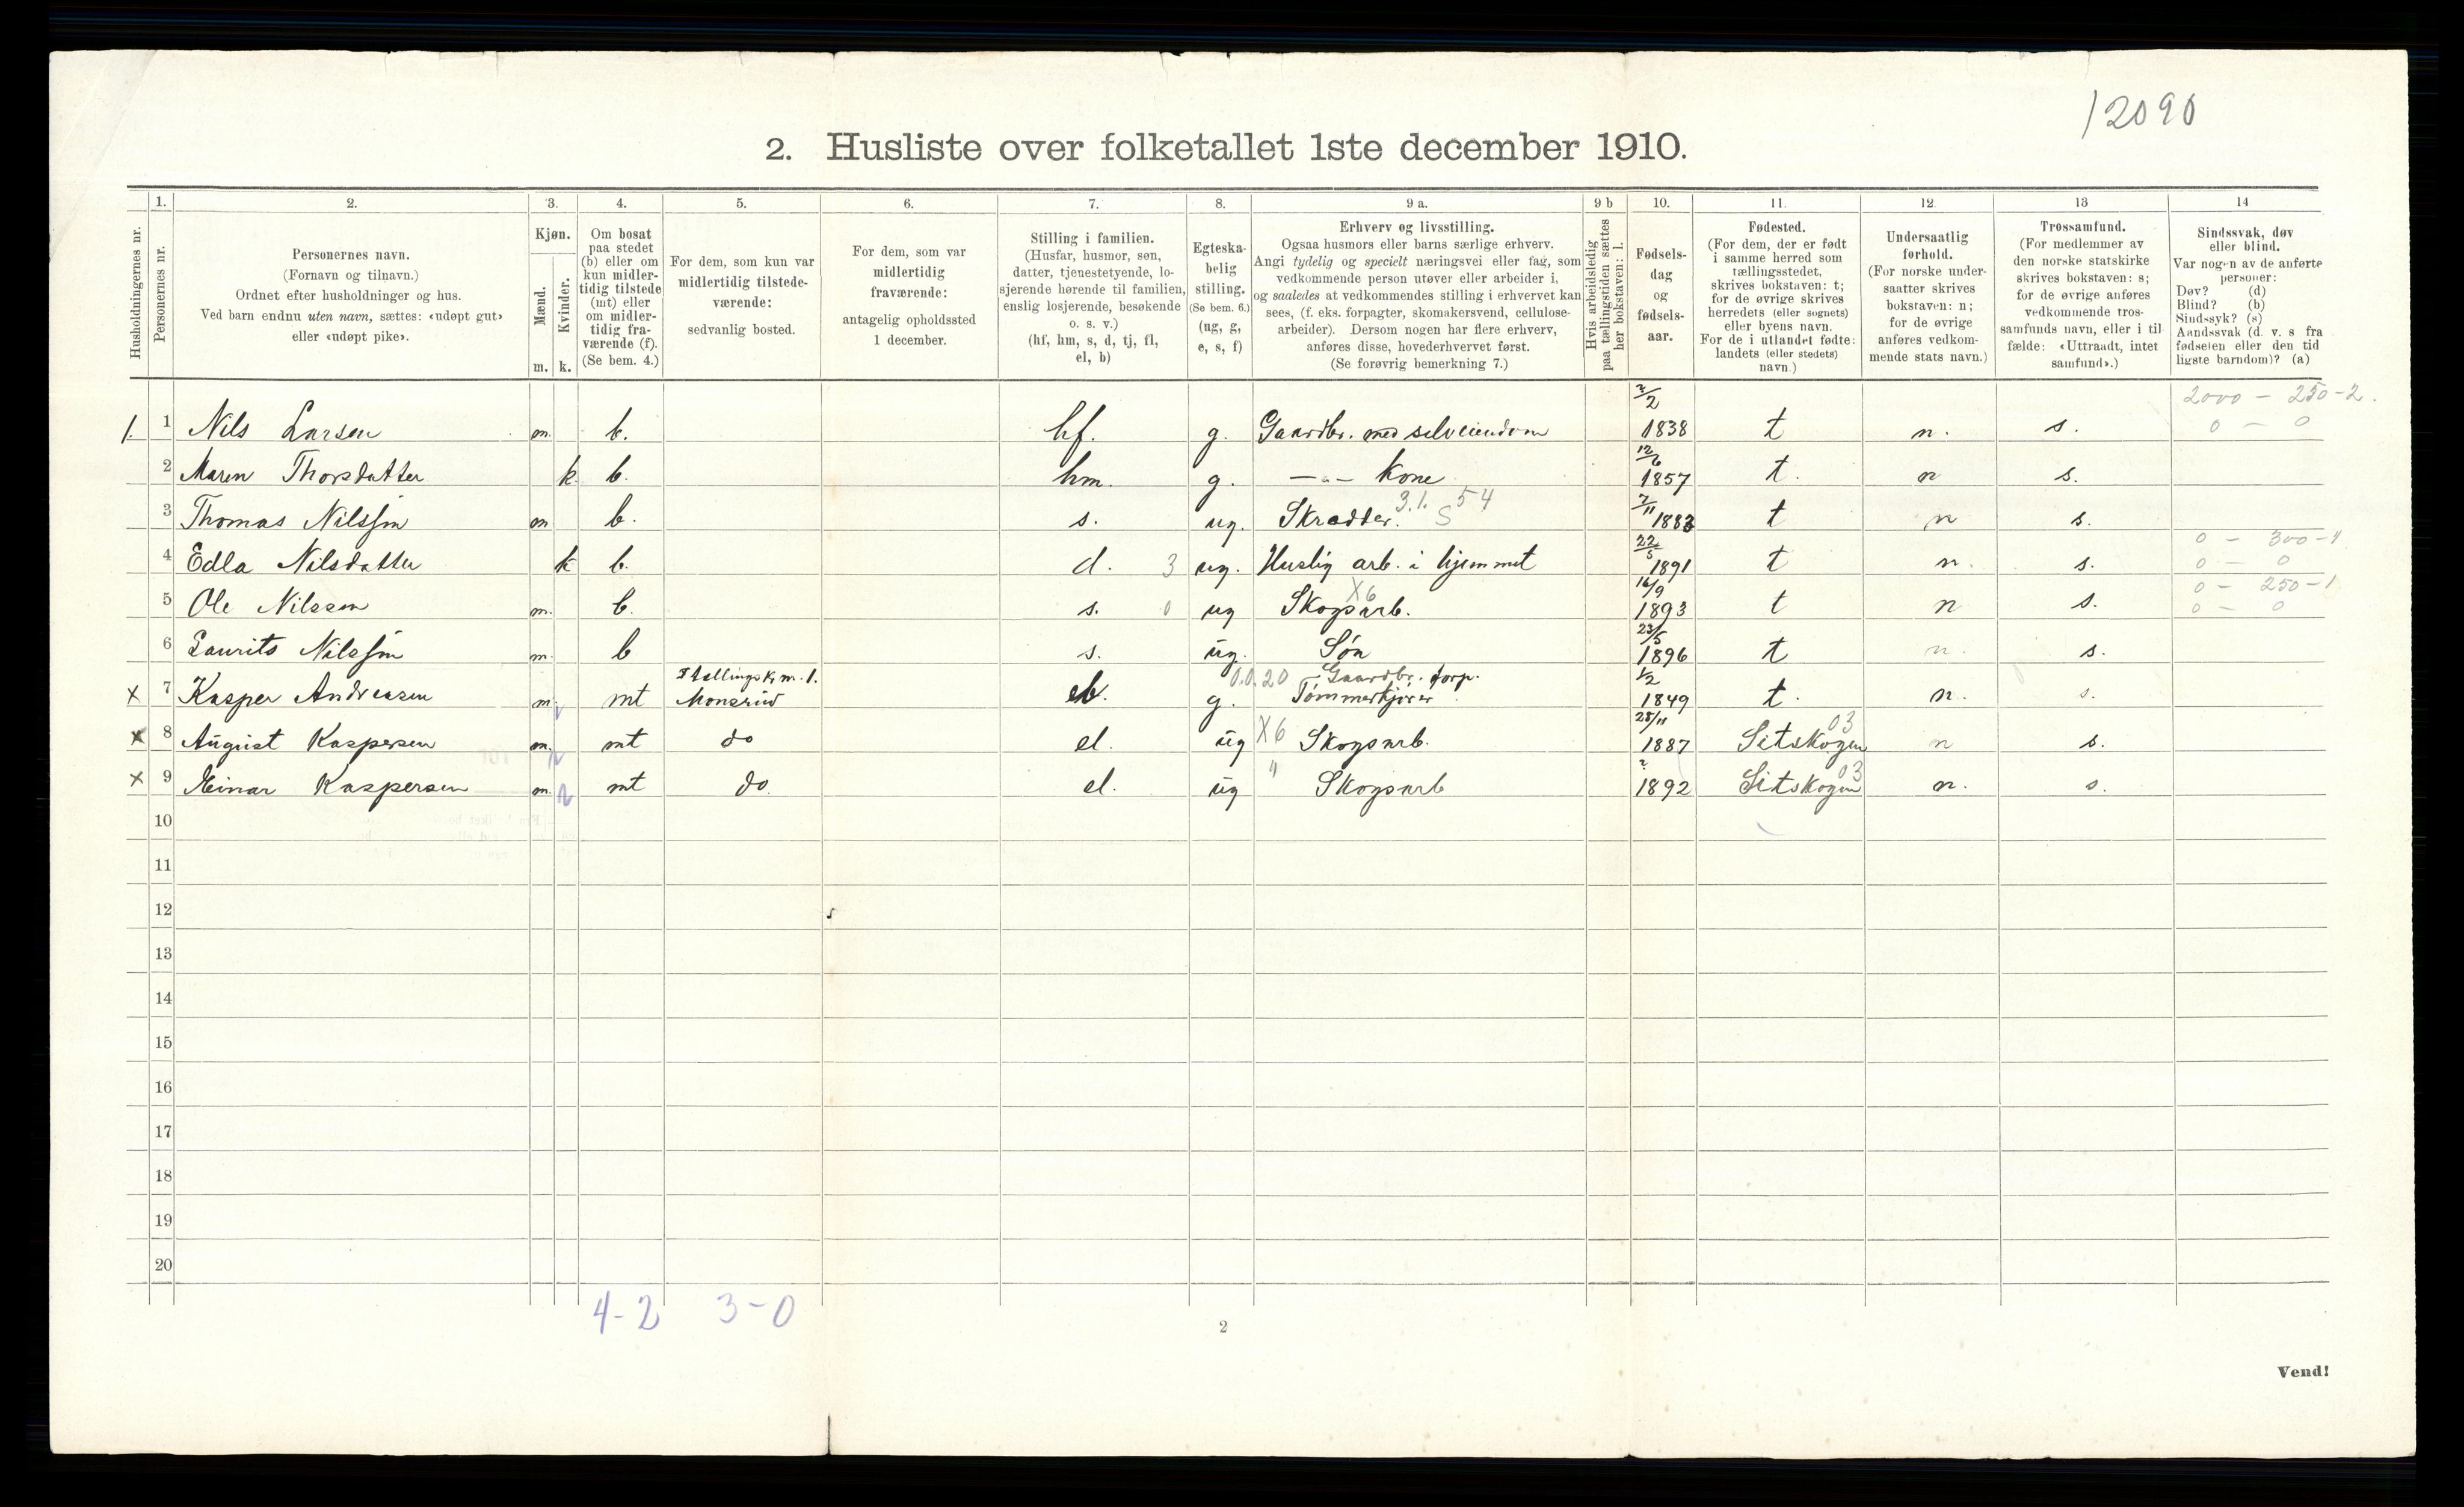 12090
2. Husliste over folketallet 1ste december 1910.
1. 2. 3. 4. 5. 6. 7. 8. 9 a. 9 b 10. 11. 12. 13 14
Husholdningernes nr.
Personernes nr.
Personernes navn.
(Fornavn og tilnavn.)
Ordnet efter husholdninger og hus.
Ved barn endnu uten navn, sættes: «udøpt gut»
eller «udøpt pike».
Kjøn.
Mænd.
Kvinder.
m. k.
Om bosat
paa stedet
(b) eller om
kun midler-
tidig tilstede
(mt) eller
om midler-
tidig fra-
værende (f).
(Se bem. 4.)
For dem, som kun var
midlertidig tilstede-
værende:
sedvanlig bosted.
For dem, som var
midlertidig
fraværende:
antagelig opholdssted
1 december.
Stilling i familien.
(Husfar, husmor, søn,
datter, tjenestetyende, lo-
sjerende hørende til familien,
enslig losjerende, besøkende
o. s. v.)
(hf, hm, s, d, tj, fl,
el, b)
Egteska-
belig
stilling.
(Se bem. 6.)
(ug, g,
e, s, f)
Erhverv og livsstilling.
Ogsaa husmors eller barns særlige erhverv.
Angi tydelig og specielt næringsvei eller fag, som
vedkommende person utøver eller arbeider i,
og saaledes at vedkommendes stilling i erhvervet kan
sees, (f. eks. forpagter, skomakersvend, cellulose-
arbeider). Dersom nogen har flere erhverv,
anføres disse, hovederhvervet først.
(Se forøvrig bemerkning 7.)
Hvis arbeidsledig
paa tællingstiden sættes
her bokstaven: l.
Fødsels-
dag
og
fødsels-
aar.
Fødested.
(For dem, der er født
i samme herred som
tællingsstedet,
skrives bokstaven: t;
for de øvrige skrives
herredets (eller sognets)
eller byens navn.
For de i utlandet fødte:
landets (eller stedets)
navn.)
Undersaatlig
forhold.
(For norske under-
saatter skrives
bokstaven: n;
for de øvrige
anføres vedkom-
mende stats navn.)
Trossamfund.
(For medlemmer av
den norske statskirke
skrives bokstaven: s;
for de øvrige anføres
vedkommende tros-
samfunds navn, eller i til
fælde: «Uttraadt, intet
samfund».)
Sindssvak, døv
eller blind.
Var nogen av de anførte
personer:
Døv? (d)
Blind? (b)
Sindssyk? (s)
Aandssvak (d. v. s fra
fødselen eller den tid
ligste barndom)? (a)
2/2 2000 - 250-2.
1. 1 Nils Larsen m. b. hf. g. Gaardbr. med selveiendom 1838 t n. s. 0 - 0
12/6
2 Maren Thorsdatter k. b. hm. g. —"— Kone 1857 t. n s.
3.1. S 54 7/11
3 Thomas Nilssøn m b. s. ug. Skrædder. 1883 t n s.
22/5 0 - 300-1
4 Edla Nilsdatter k b. d. 3 ug. Huslig arb. i hjemmet 1891 t n. s. 0 - 0
X6 16/9 0 - 250-1
5 Ole Nilssen m. b. s. 0 ug Skogsarb. 1893 t n s. 0 - 0
23/5
6 Laurits Nilssøn m. b s. ug. Søn 1896 t n. s.
Tællingskr. m. 1. 0.0.20 Gaardbr. forp. 1/2
x 7 Kasper Andreasen m. mt Monsrud eb. g. Tømmerkjører 1849 t. n. s.
25/11 03
x 8 August Kaspersen m. mt do el. ug X6 Skogsarb. 1887 Setskogen n s.
? 03
x 9 Einar Kaspersen m. mt do. el. ug " Skogsarb 1892 Setskogen n. s.
10
11
12
13
14
15
16
17
18
19
20
4-2 3-0
2
Vend!